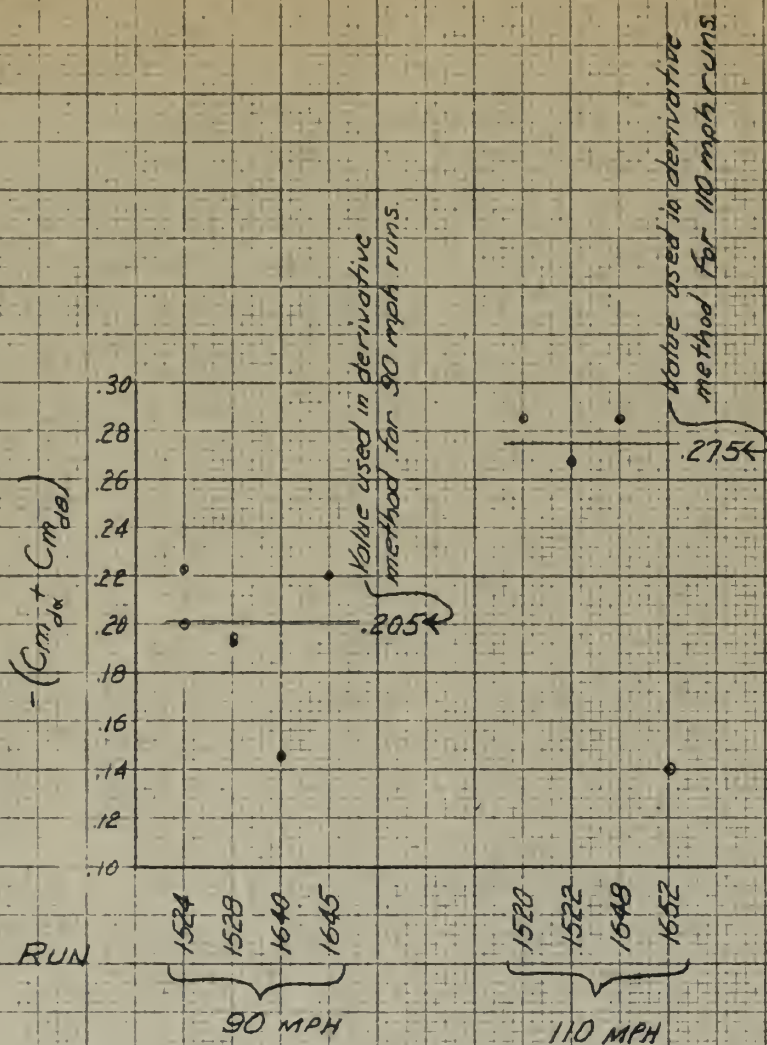 Value used in derivative
method for 110 mph runs.
Value used in derivative
method for 90 mph runs.
.30
.28
.26
.24
.22
.20
.18
.16
.14
.12
.10
-(Cm dα + Cm dθ)
.205
.275
RUN
1524
1528
1640
1645
1520
1522
1648
1652
90 MPH
110 MPH